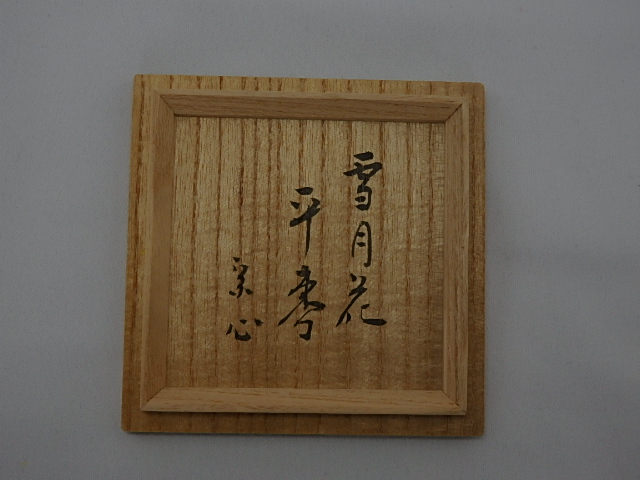 雪月花
平棗
宗心